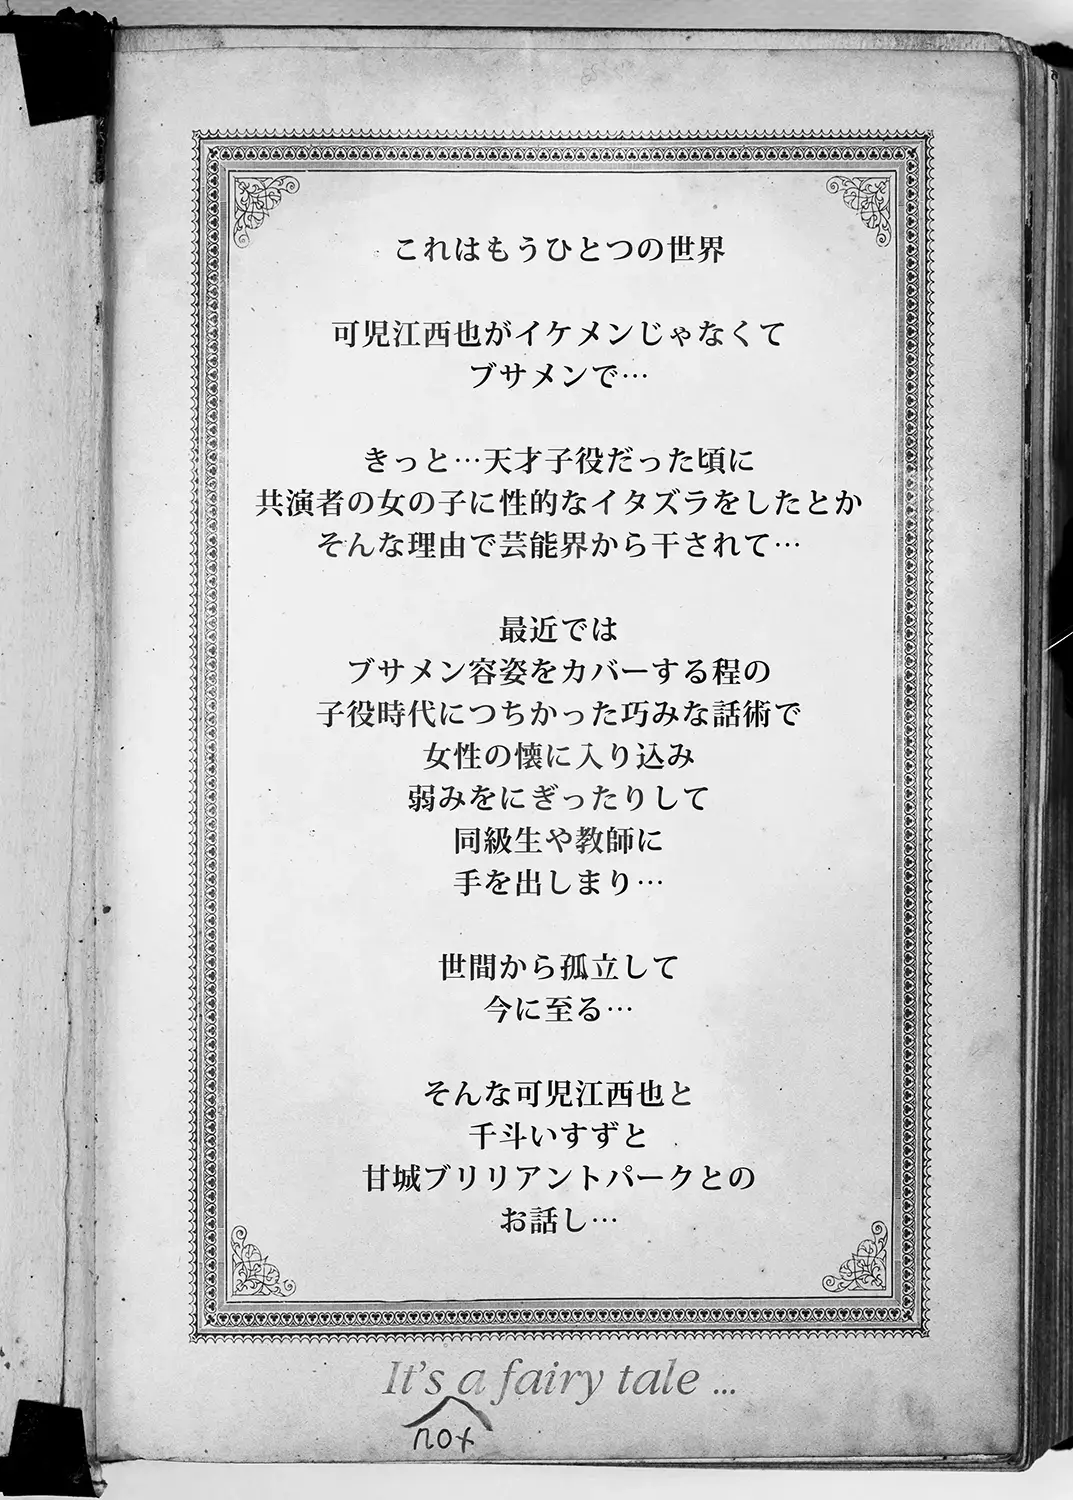 これはもうひとつの世界
可児江西也がイケメンじゃなくて
ブサメンで…
きっと…天才子役だった頃に
共演者の女の子に性的なイタズラをしたとか
そんな理由で芸能界から干されて…
最近では
ブサメン容姿をカバーする程の
子役時代につちかった巧みな話術で
女性の懐に入り込み
弱みをにぎったりして
同級生や教師に
手を出しまり…
世間から孤立して
今に至る…
そんな可児江西也と
千斗いすずと
甘城ブリリアントパークとの
お話し…
It's a fairy tale ...
not